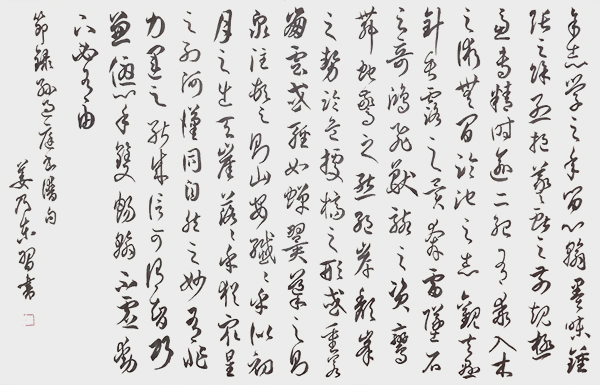 余志學之年留心翰墨味鍾
張之餘烈挹羲獻之前規極
慮專精時逾二紀有乖入木
之術無間臨池之志觀夫懸
針垂露之異奔雷墜石
之奇鴻飛獸駭之資鸞
舞蛇驚之態絕岸頹峯
之勢臨危據槁之形或重若
崩雲或輕如蟬翼導之則
泉注頓之則山安纖〻乎似初
月之出天崖落〻乎猶眾星
之列河漢同自然之妙有非
力運之能成信可謂智巧
兼優心手雙暢翰不虛動
下必有由
節錄孫過庭書譜句
姜乃東習書